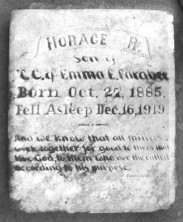 HORACE R.
Son of
C.C. & Emma E. Farabee
Born Oct. 22, 1885,
Fell Asleep Dec. 16, 1919
And we know that all things
work together for good to them that
love God, to them who are the called
according to his purpose.